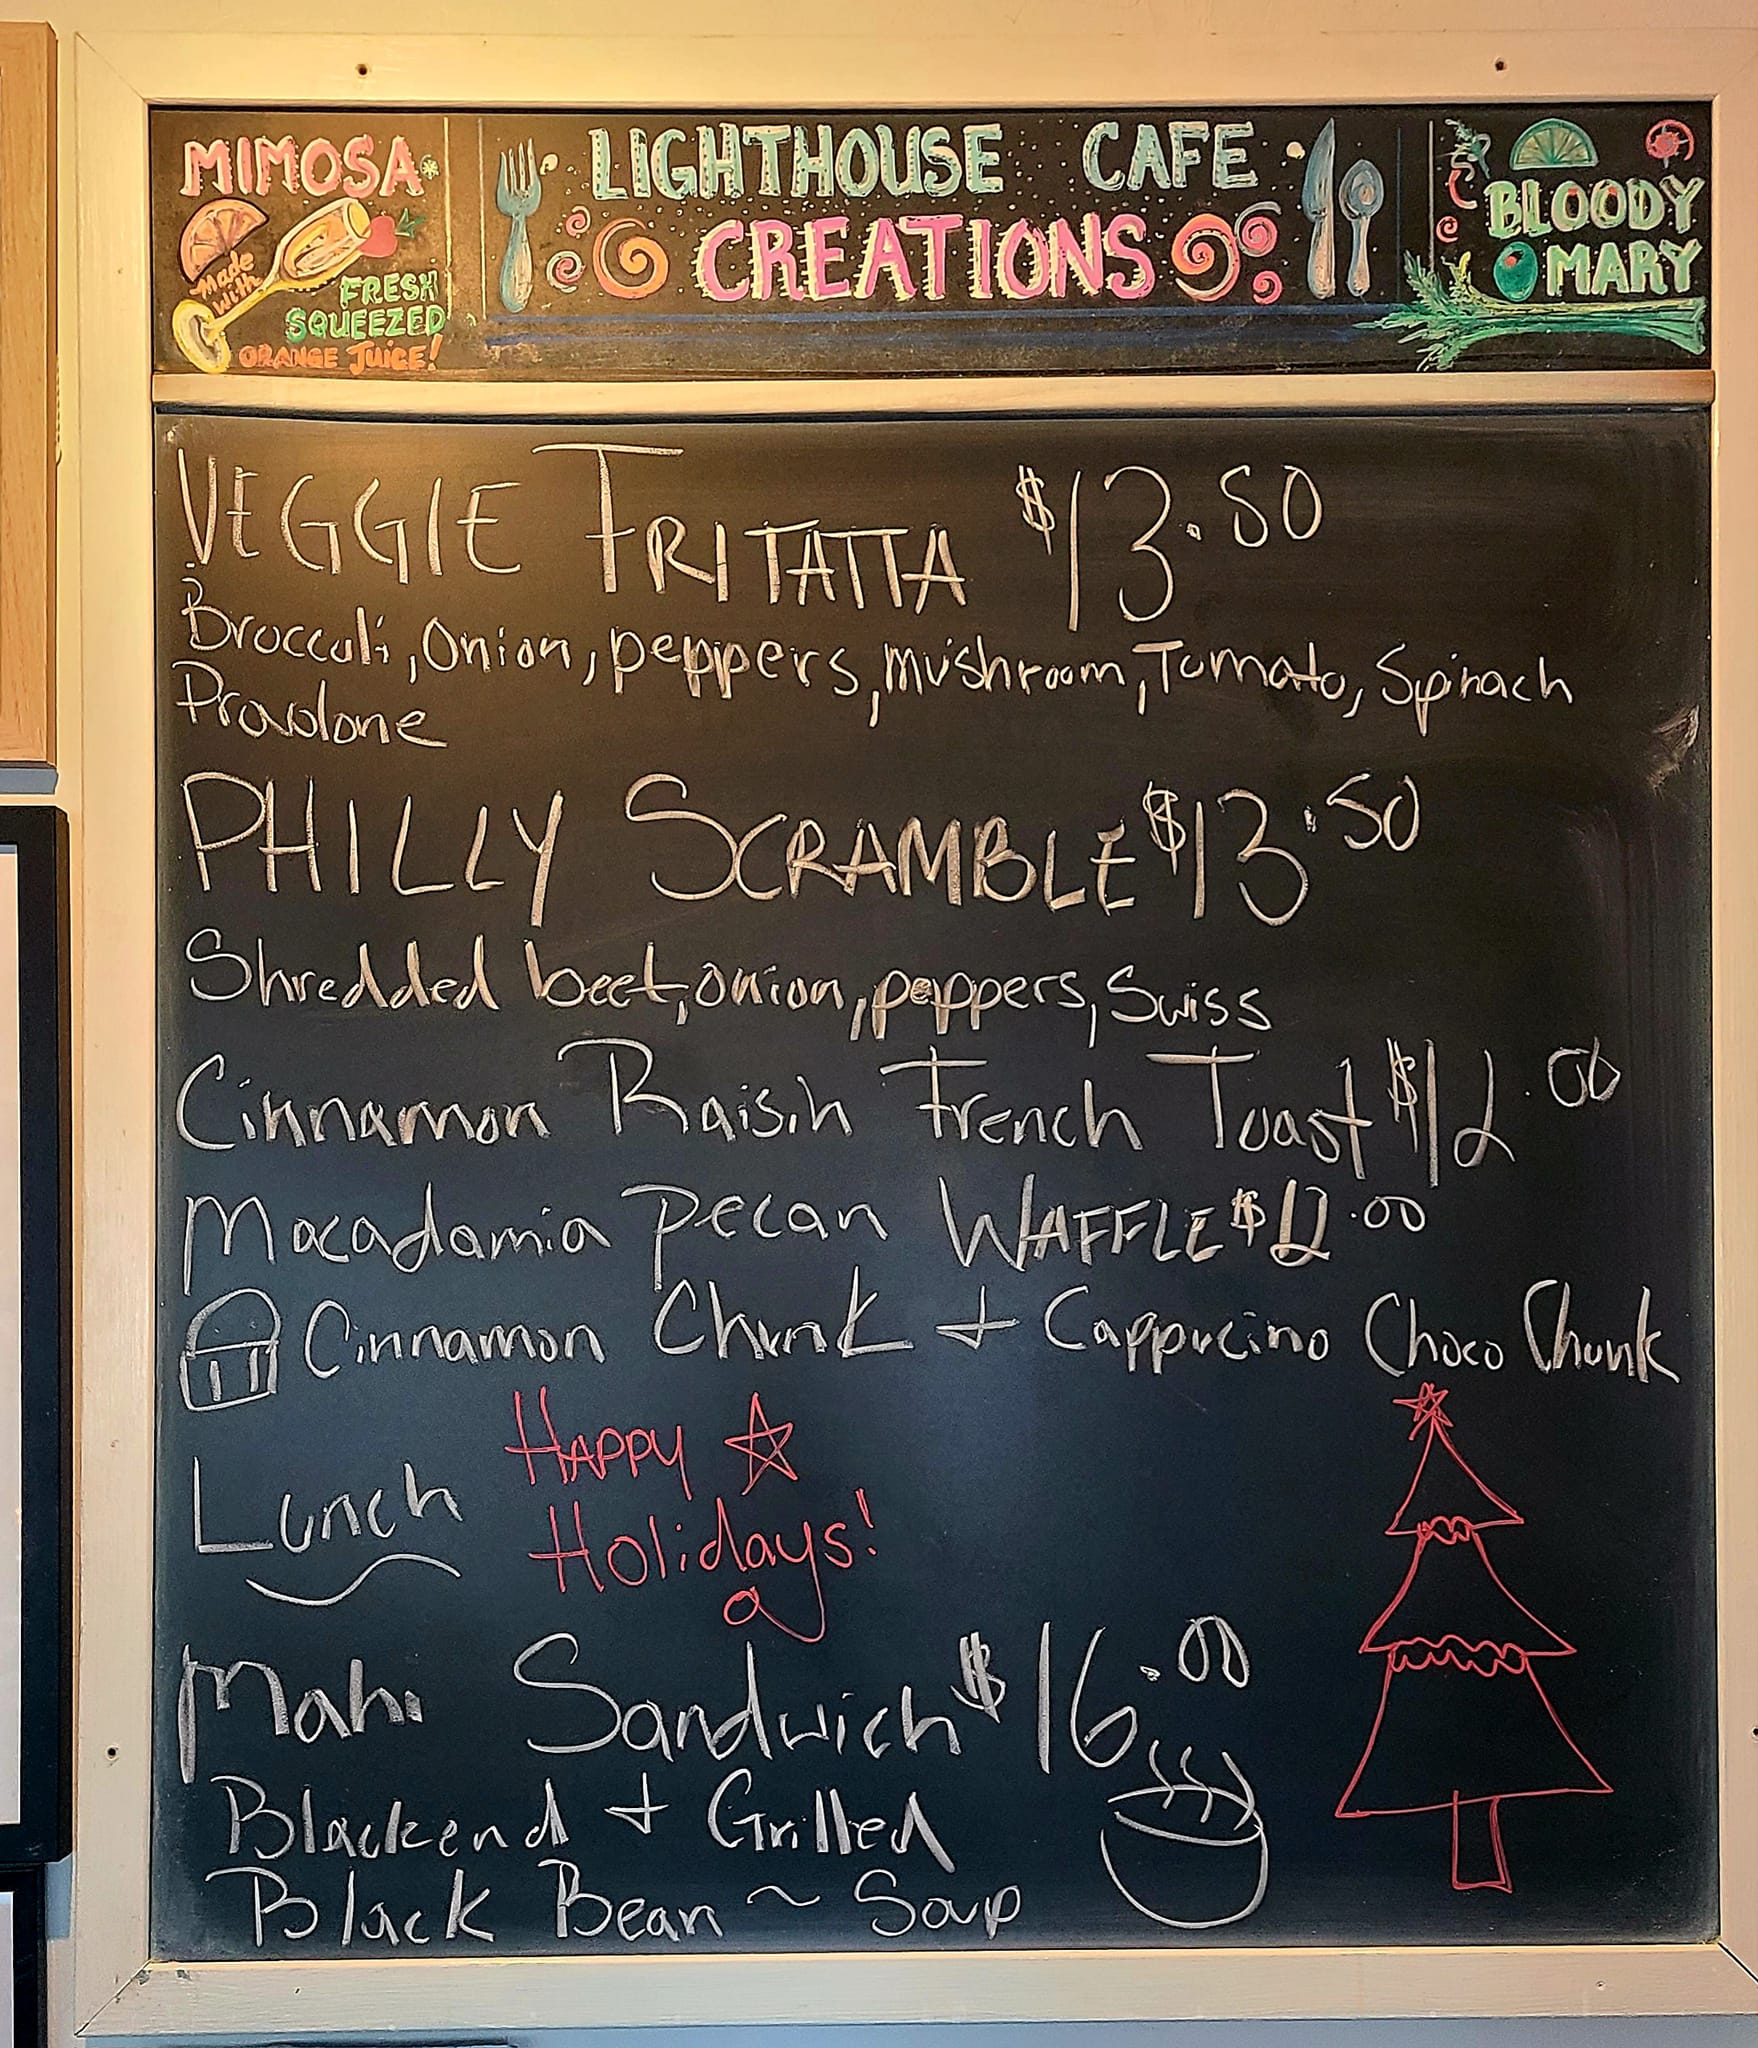 MIMOSA
made with
FRESH
SQUEEZED
ORANGE JUICE!
LIGHTHOUSE CAFE
CREATIONS
BLOODY
MARY
VEGGIE FRITATTA $13.50
Broccoli, Onion, peppers, mushroom, Tomato, Spinach
Provolone
PHILLY SCRAMBLE $13.50
Shredded beef, onion, peppers, Swiss
Cinnamon Raisin French Toast $12.00
Macadamia Pecan WAFFLE $12.00
Cinnamon Chunk + Cappuccino Choco Chunk
Lunch
HAPPY
Holidays!
Mahi Sandwich $16.00
Blackend + Grilled
Black Bean ~ Soup